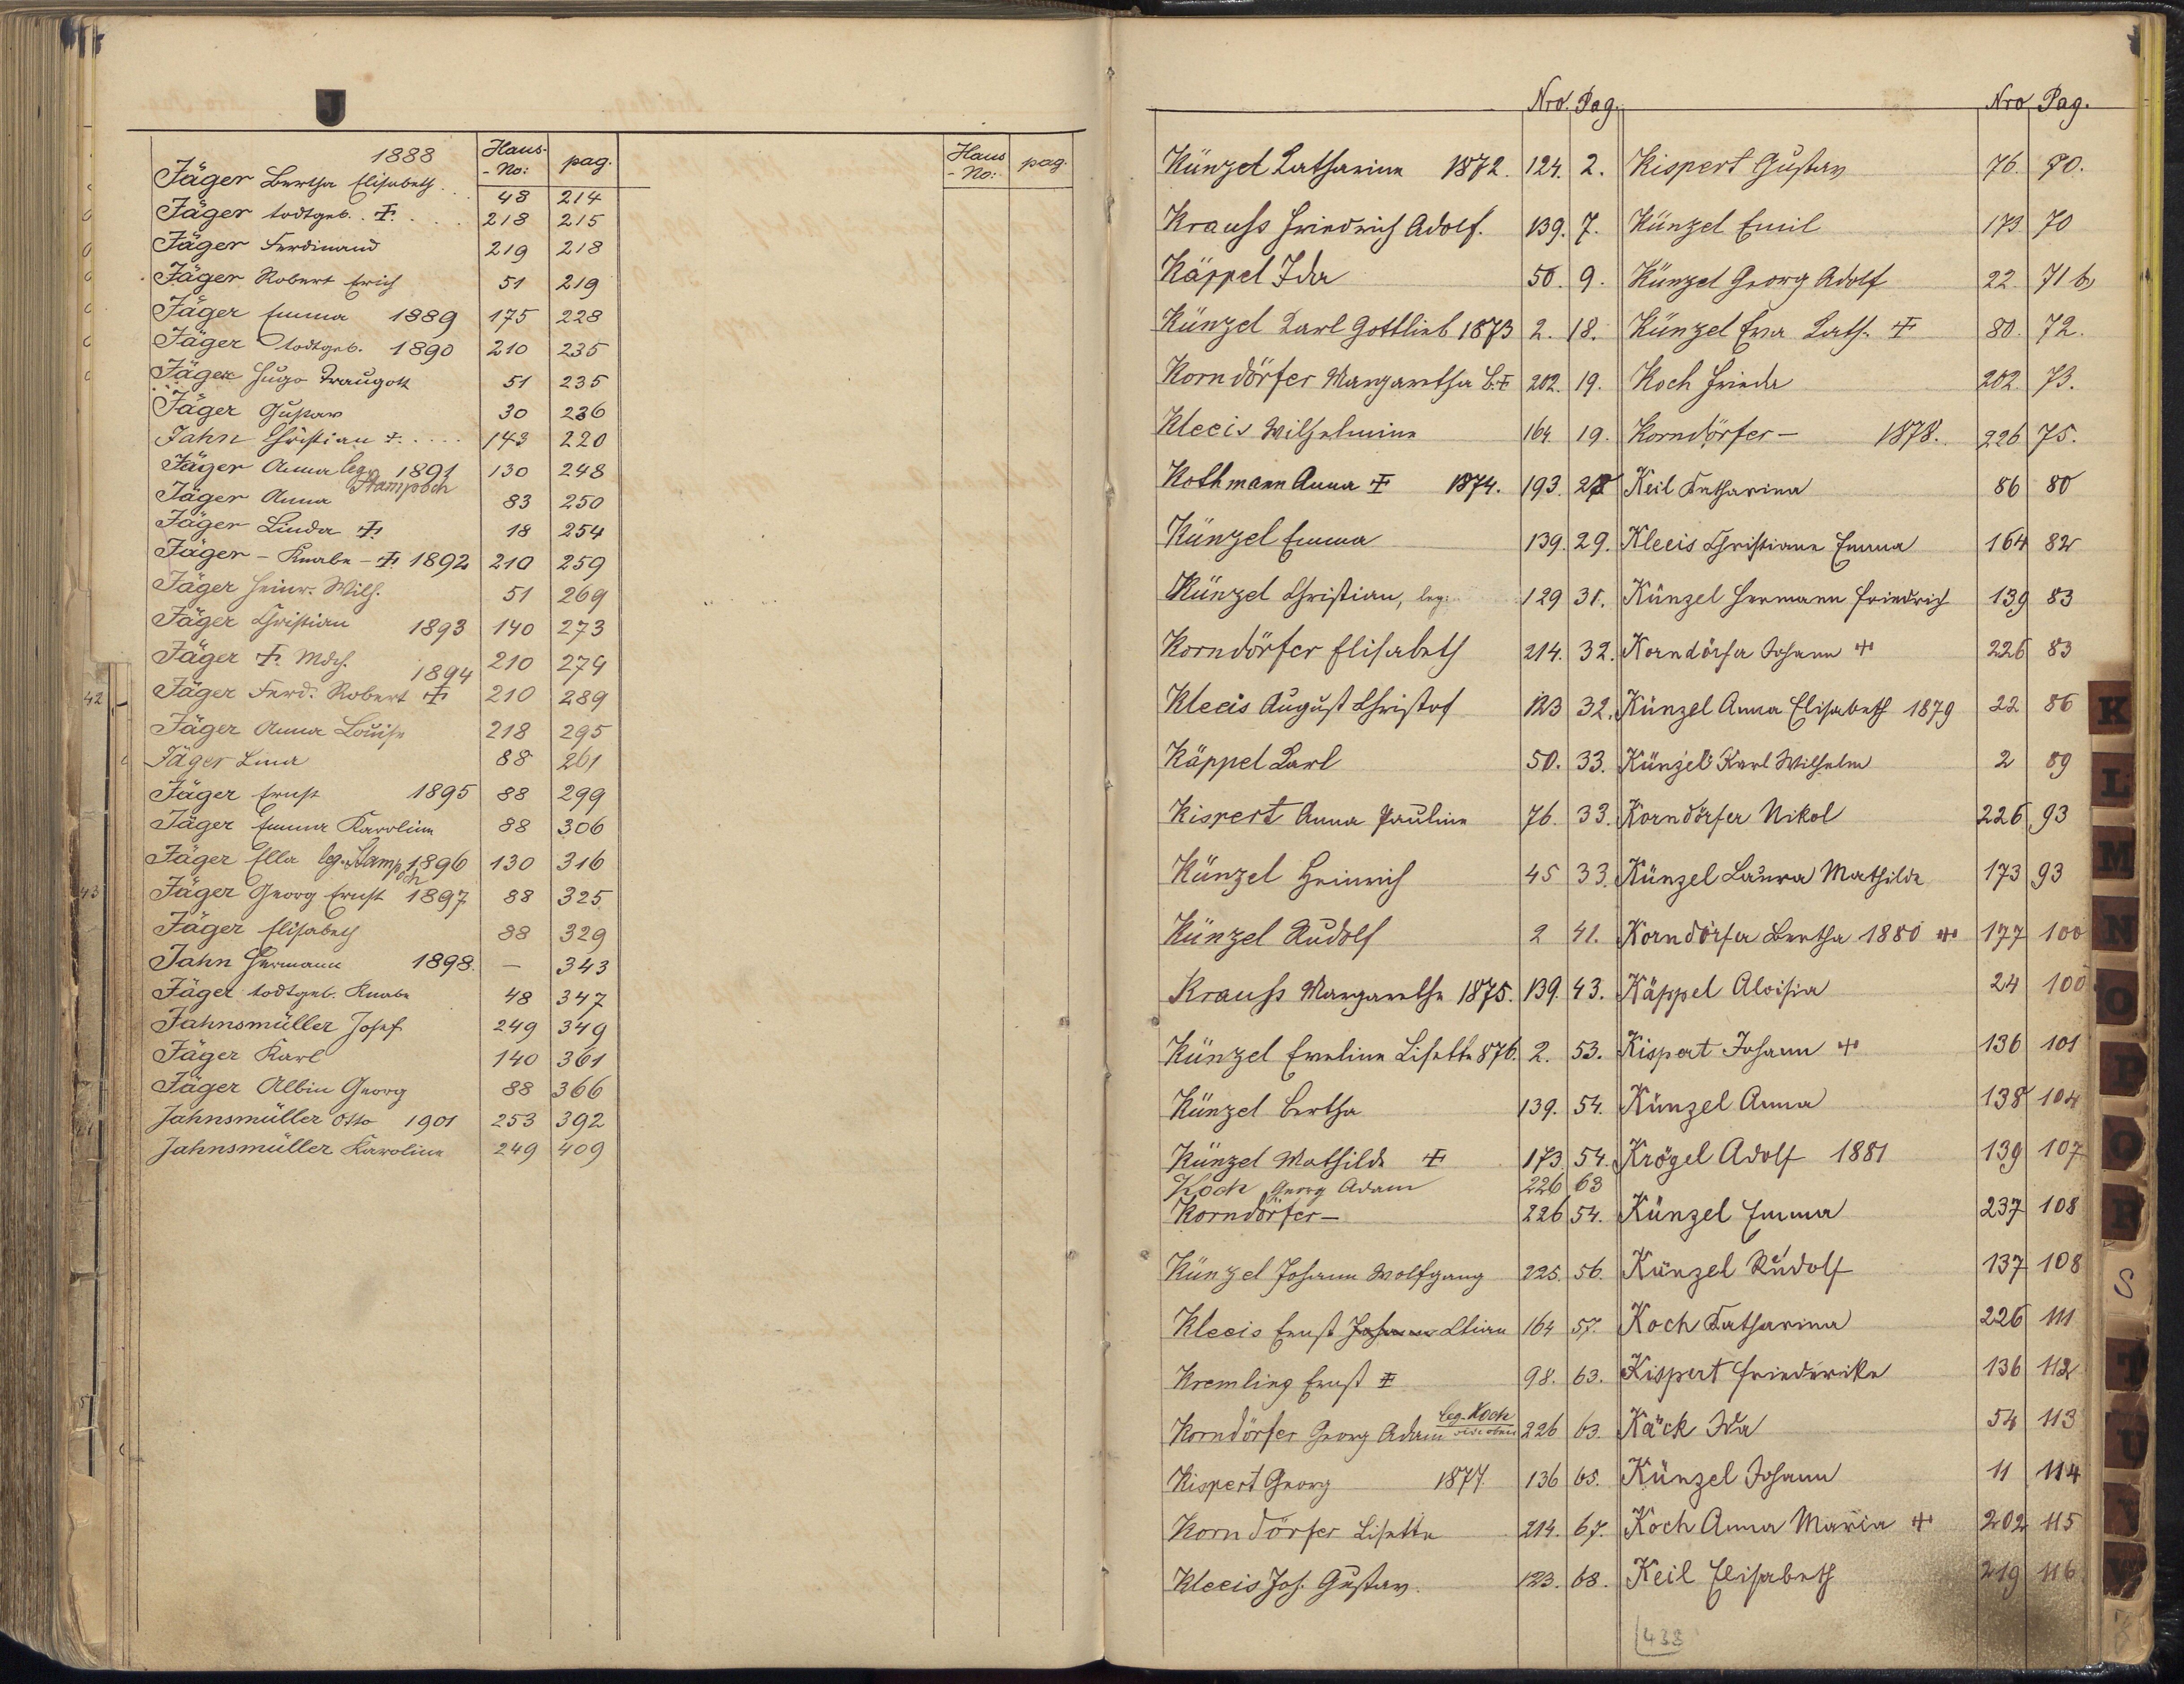 J
Haus-No: pag. Haus-No: pag.
1888
Jäger Bertha Elisabeth. 48 214
Jäger todtgeb. ‡. 218 215
Jäger Ferdinand 219 218
Jäger Robert Erich 51 219
Jäger Emma 1889 175 228
Jäger todtgeb. 1890 210 235
Jäger Hugo Traugott 51 235
Jäger Gustav 30 236
Jahn Christian ‡ 143 220
Jäger Anna leg. Stampöch 1891 130 248
Jäger Anna 83 250
Jäger Linda ‡ 18 254
Jäger - Knabe - ‡ 1892 210 259
Jäger Heinr. Wilh. 51 269
Jäger Christian 1893 140 273
Jäger ‡ Mdch. 1894 210 279
Jäger Ferd. Robert ‡ 210 289
Jäger Anna Louise 218 295
Jäger Lina 88 261
Jäger Ernst 1895 88 299
Jäger Emma Karoline 88 306
Jäger Ella leg. Stampöch 1896 130 316
Jäger Georg Ernst 1897 88 325
Jäger Elisabeth 88 329
Jahn Hermann 1898. — 343
Jäger todtgeb. Knabe 48 347
Jahnsmüller Josef 249 349
Jäger Karl 140 361
Jäger Albin Georg 88 366
Jahnsmüller Otto 1901 253 392
Jahnsmüller Karoline 249 409
42
43
Nro. Pag.
Künzel Katharina 1872. 124. 2.
Krauß Friedrich Adolf. 139. 7.
Käppel Ida 50. 9.
Künzel Karl Gottlieb 1873 2. 18.
Korndörfer Margaretha B. ‡ 202. 19.
Kleeis Wilhelmine 164. 19.
Kothmann Anna ‡ 1874. 193.
Künzel Emma 139. 29.
Künzel Christian, leg: 129 31.
Korndörfer Elisabeth 214. 32.
Kleeis August Christof 123 32.
Käppel Karl 50. 33.
Kispert Anna Pauline 76. 33.
Künzel Heinrich 45 33.
Künzel Rudolf 2 41.
Krauß Margarethe 1875. 139. 43.
Künzel Eveline Lisette 876. 2. 53.
Künzel Bertha 139. 54.
Künzel Mathilde ‡ 173 54.
Koch Georg Adam 226 63
Korndörfer — 226 54.
Künzel Johann Wolfgang 225. 56.
Kleeis Ernst Johann Chrian 164 57.
Kremling Ernst ‡ 98. 63.
Korndörfer Georg Adam leg. Koch vide oben 226 63.
Kispert Georg 1877. 136 65.
Korndörfer Lisette 214. 67.
Kleeis Joh. Gustav. 123. 68.
Nro Pag.
Kispert Gustav 76. 70.
Künzel Emil 173 70
Künzel Georg Adolf 22. 71 b
Künzel Eva Kath. ‡ 80. 72.
Koch Frieda 202. 73.
Korndörfer — 1878. 226 75.
Keil Katharina 86 80
Kleeis Christiane Emma 164 82
Künzel Hermann Friedrich 139 83
Korndörfer Johann ‡ 226 83
Künzel Anna Elisabeth 1879 22 86
Künzel Karl Wilhelm 2 89
Korndörfer Nikol 226 93
Künzel Laura Mathilde 173 93
Korndörfer Bertha 1880 ‡ 177 100
Käppel Aloisia 24 100
Kispert Johann ‡ 136 101
Künzel Anna 138 104
Krögel Adolf 1881 139 107
Künzel Emma 237 108
Künzel Rudolf 137 108
Koch Katharina 226 111
Kispert Friederike 136 112
Käck Ida 54 113
Künzel Johann 11 114
Koch Anna Maria ‡ 202 115
Keil Elisabeth 219 116
438
K
L
M
N
O
P
Q
R
S
T
U
V
W